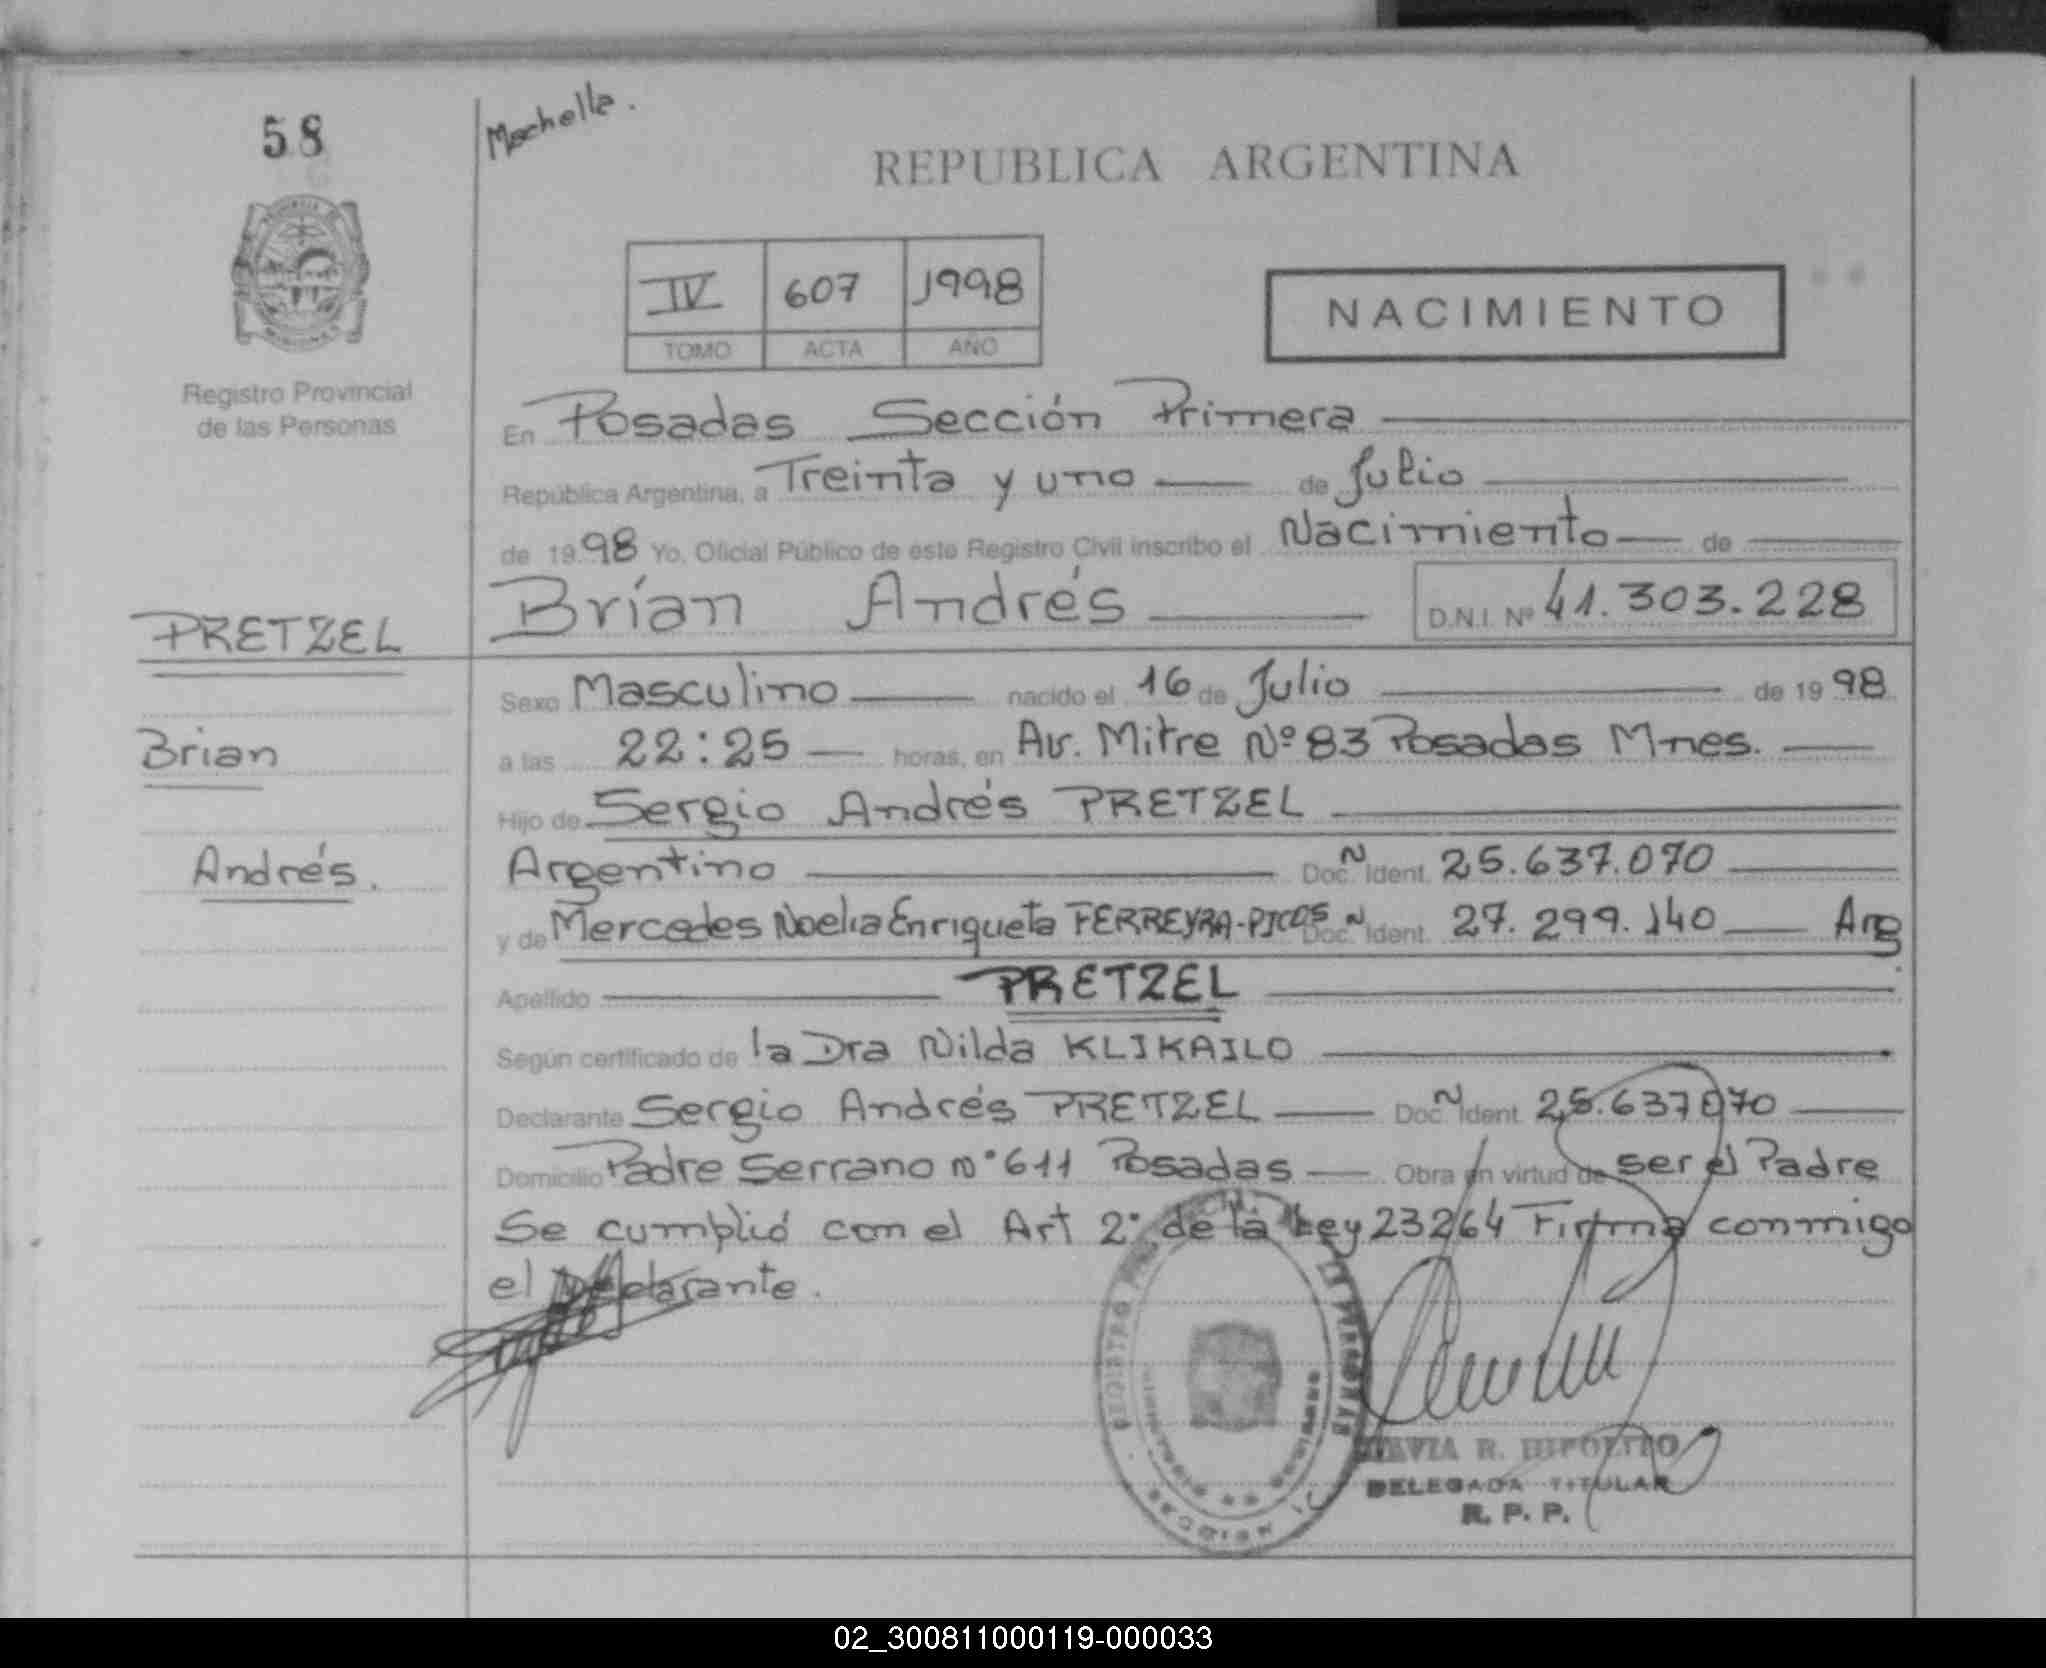 58
Mechella.
REPUBLICA ARGENTINA
IV 607 1998
TOMO ACTA AÑO
NACIMIENTO
Registro Provincial
de las Personas
En Posadas Sección Primera
República Argentina, a Treinta y uno de Julio
de 1998 Yo, Oficial Público de este Registro Civil inscribo el Nacimiento de
Brían Andrés D.N.I. Nº 41.303.228
PRETZEL
Brian
Andrés.
Sexo Masculino nacido el 16 de Julio de 1998
a las 22:25 horas, en Av. Mitre Nº 83 Posadas Mnes.
Hijo de Sergio Andrés PRETZEL
Argentino Doc. N Ident. 25.637.070
y de Mercedes Noelia Enriqueta FERREYRA-PICOS Doc. N Ident. 27.299.140 Arg
Apellido PRETZEL
Según certificado de la Dra Nilda KLIKAILO
Declarante Sergio Andrés PRETZEL Doc. N Ident. 25.637070
Domicilio Padre Serrano Nº 611 Posadas Obra en virtud de ser el Padre
Se cumplió con el Art 2° de la Ley 23264 Firma conmigo
el Declarante.
R. HIPOLITO
DELEGADA TITULAR
R. P. P.
02_300811000119-000033